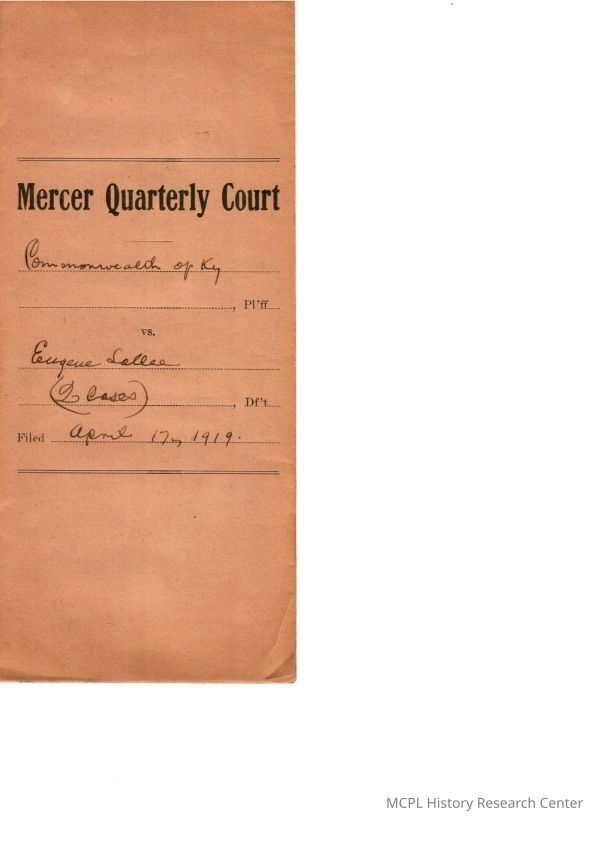 Mercer Quarterly Court
Commonwealth of Ky
, Pl'ff.
vs.
Eugene Sallee
(2 Cases) , Df't.
Filed April 17, 1919.
MCPL History Research Center